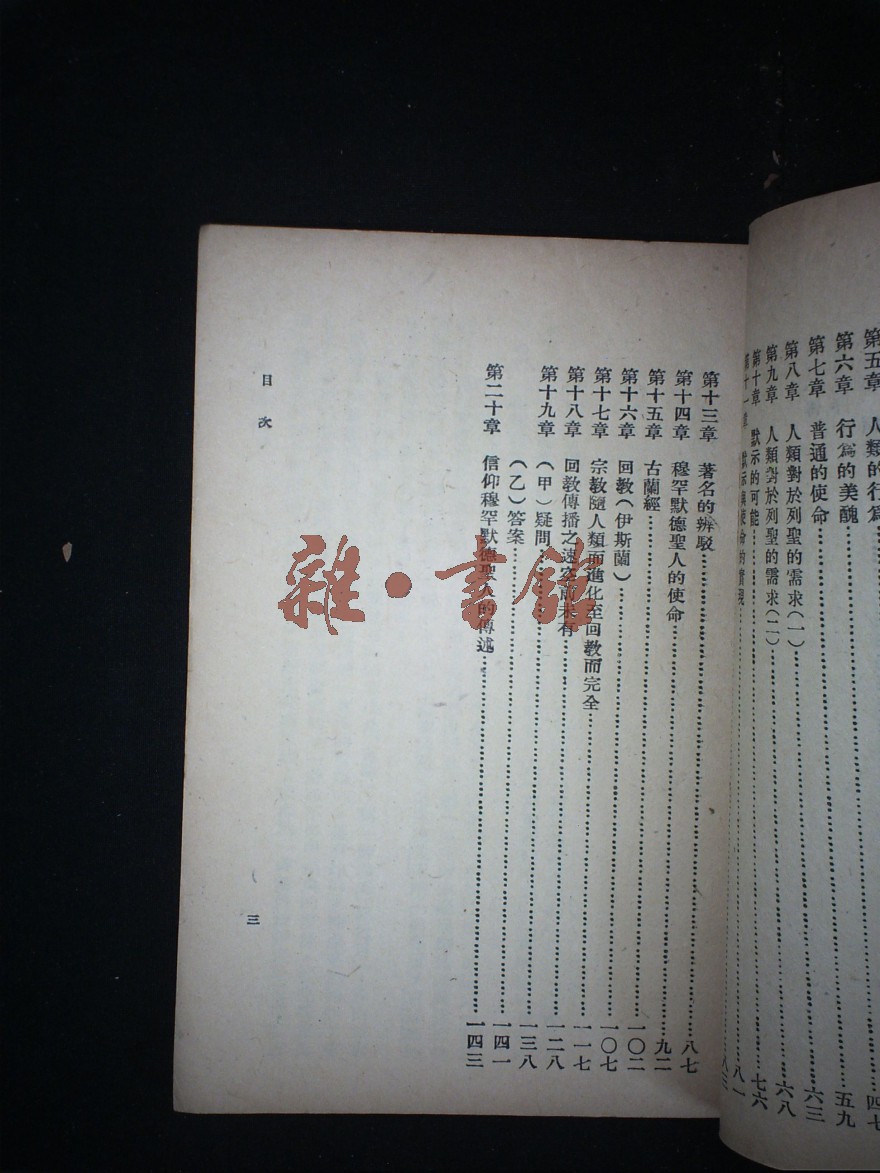 第五章 人類的行爲……四七
第六章 行爲的美醜……五九
第七章 普通的使命……六三
第八章 人類對於列聖的需求(一)……六八
第九章 人類對於列聖的需求(二)……七六
第十章 默示的可能……八一
第十一章 默示與使命的實現……八三
第十三章 著名的辨駁……八七
第十四章 穆罕默德聖人的使命……九二
第十五章 古蘭經……一〇二
第十六章 回教(伊斯蘭)……一〇七
第十七章 宗教隨人類而進化至回教而完全……一一七
第十八章 回教傳播之速空前未有……一二八
第十九章 (甲)疑問……一三八
(乙)答案……一四一
第二十章 信仰穆罕默德聖人的傳述……一四三
目次
三
雜·書館